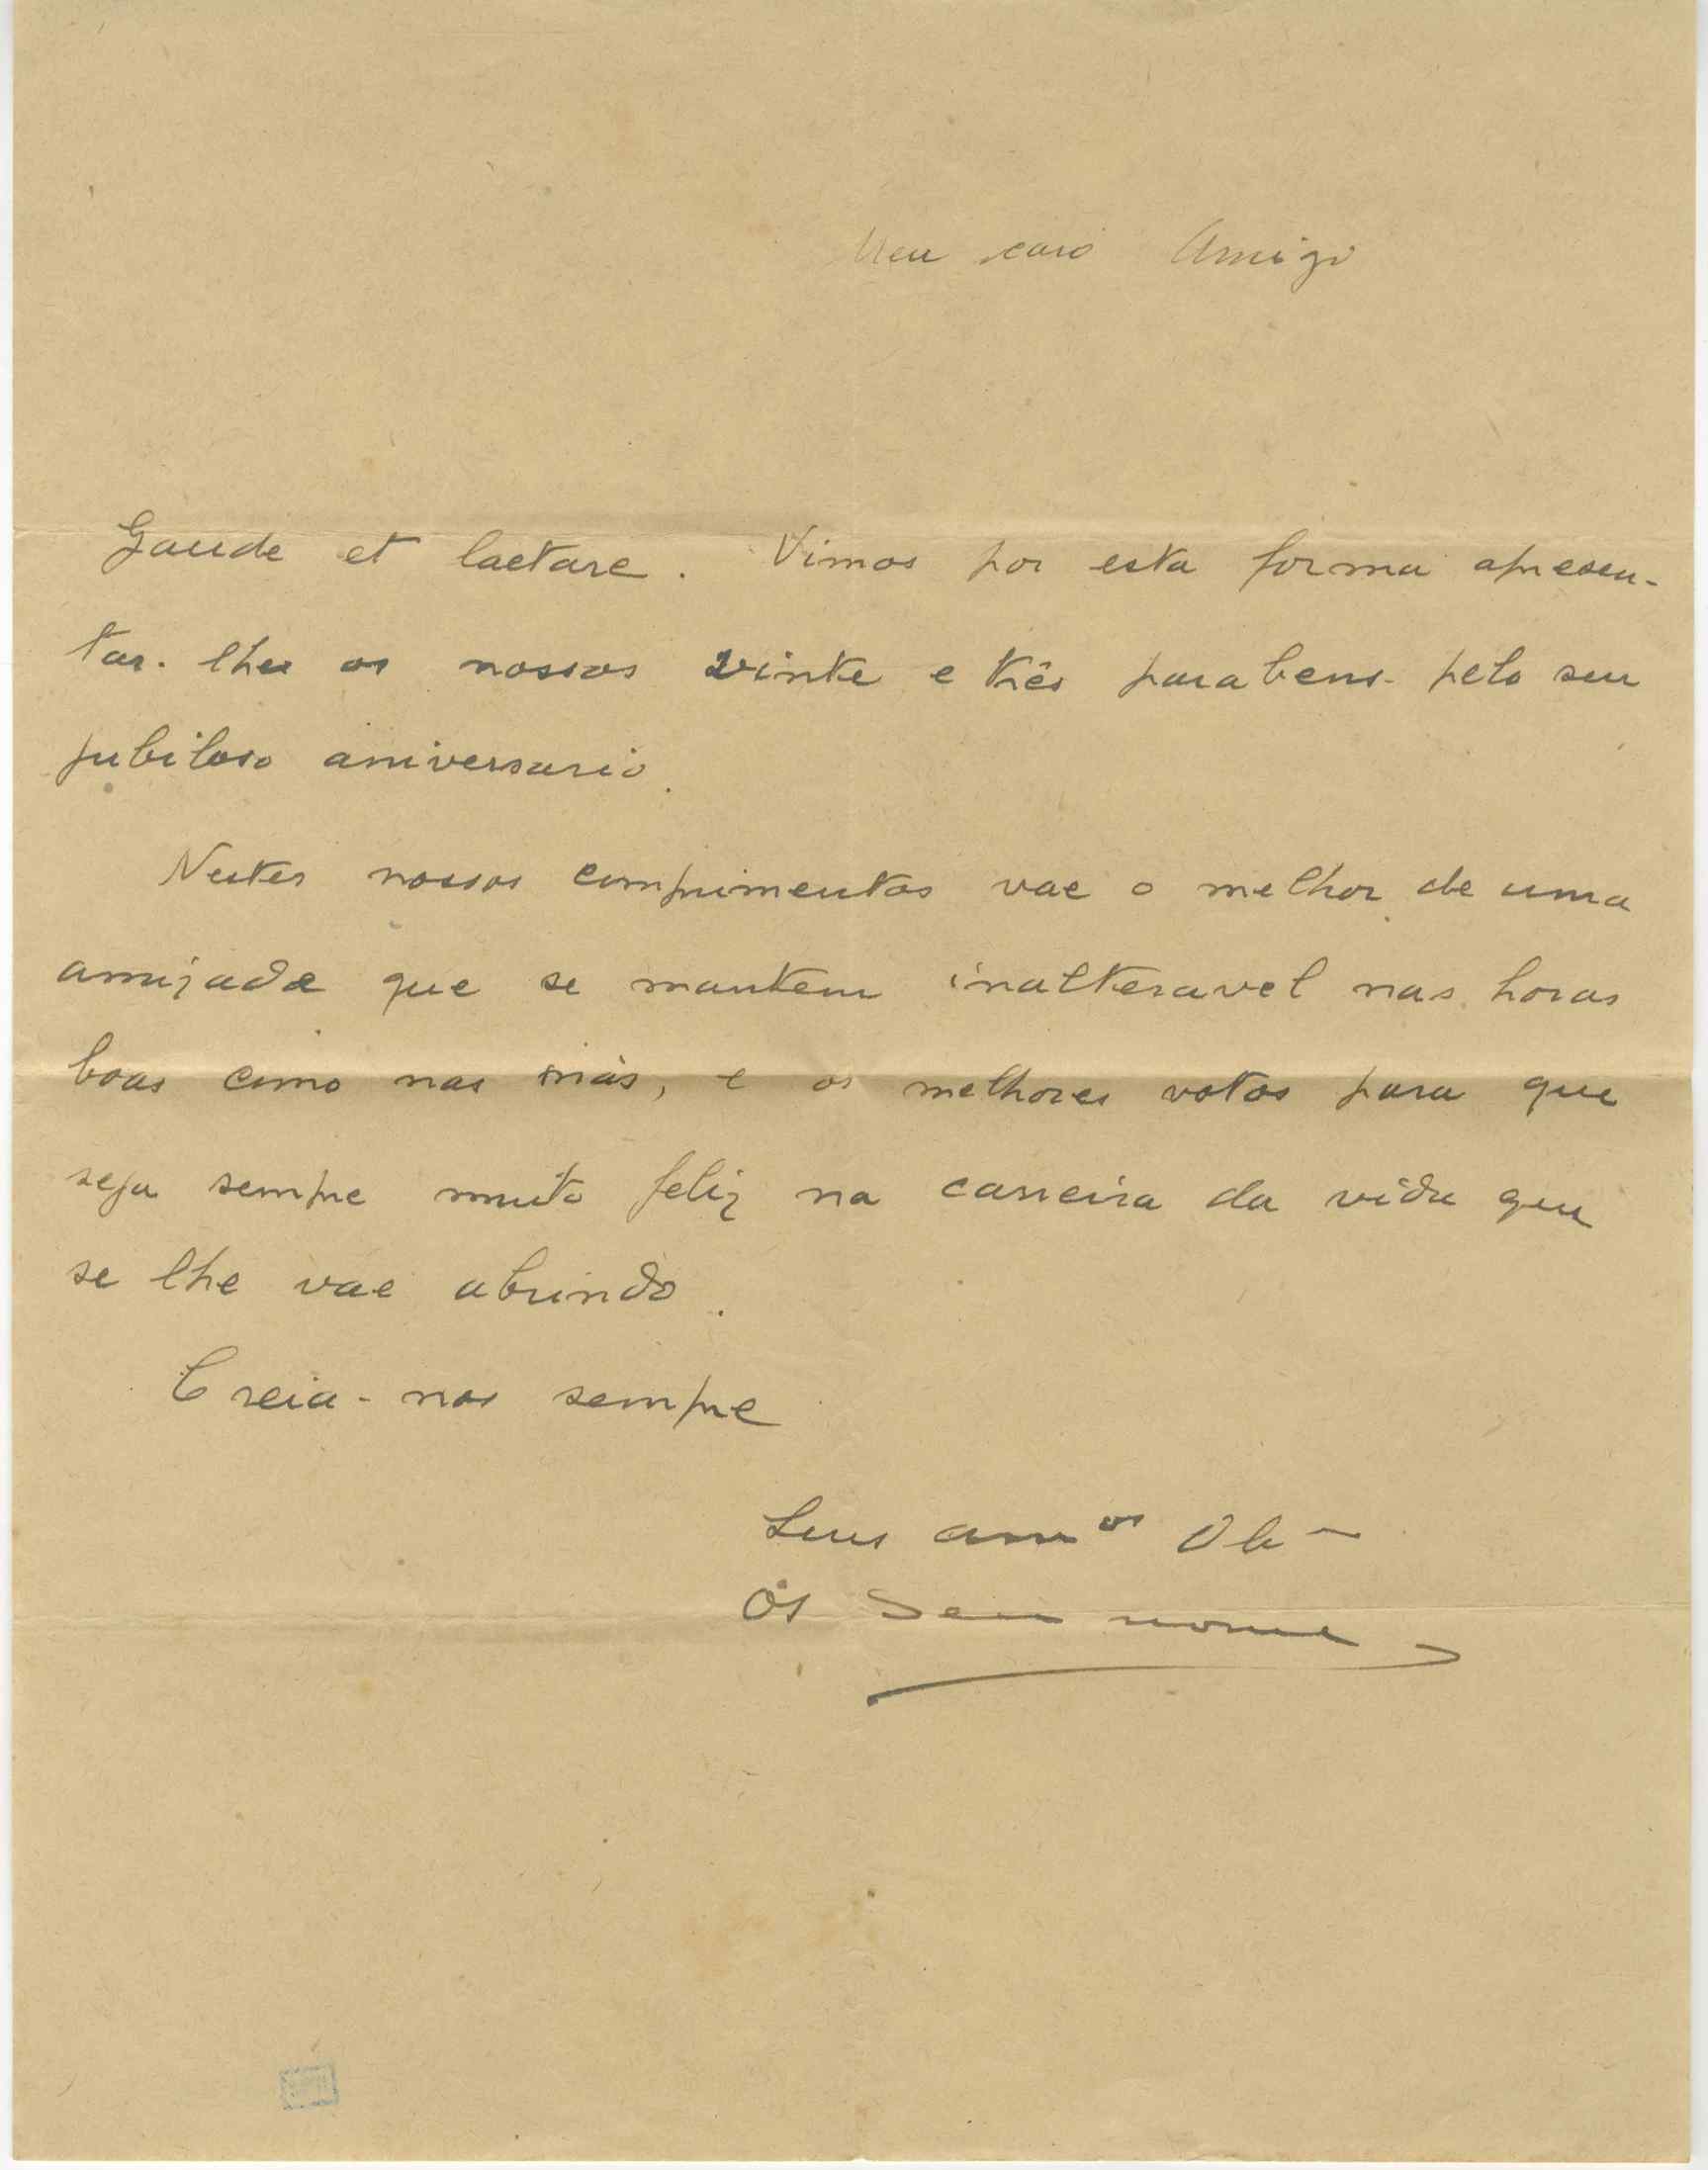 Meu caro Amigo
Gaude et laetare. Vimos por esta forma apresen-
tar-lhe os nossos vinte e três parabens pelo seu
jubiloso aniversario.
Nestes nossos comprimentos vae o melhor de uma
amizade que se mantem inalteravel nas horas
boas como nas más, e os melhores votos para que
seja sempre muito feliz na carreira da vida que
se lhe vae abrindo.
Creia-nos sempre
Seus amos Ob
Os Sem nome